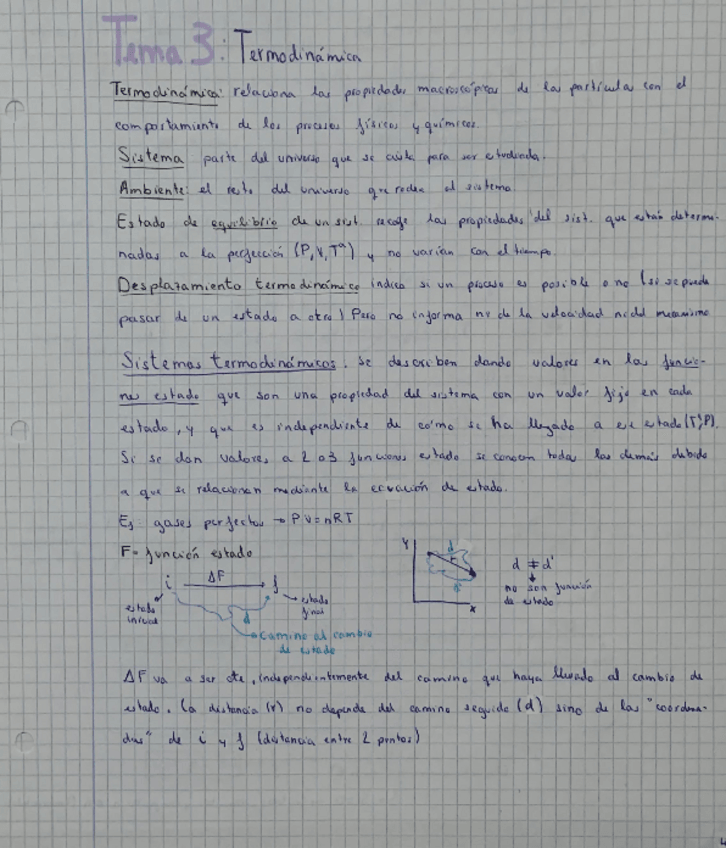 Tema 3: Termodinámica
Termodinámica: relaciona las propiedades macroscópicas de las partículas con el
comportamiento de los procesos físicos y químicos.
Sistema parte del universo que se aísla para ser estudiada.
Ambiente: el resto del universo que rodea al sistema
Estado de equilibrio de un sist. recoge las propiedades del sist. que están determi-
nadas a la perfección (P, V, Tª) y no varían con el tiempo.
Desplazamiento termodinámico indica si un proceso es posible o no (si se puede
pasar de un estado a otro) Pero no informa ni de la velocidad ni del mecanismo
Sistemas termodinámicos. se describen dando valores en las funcio-
nes estado que son una propiedad del sistema con un valor fijo en cada
estado, y que es independiente de cómo se ha llegado a ese estado (T, P).
Si se dan valores a 2 o 3 funciones estado se conocen todas las demás debido
a que se relacionan mediante la ecuación de estado.
Ej: gases perfectos → PV=nRT
F= función estado
i ΔF f
estado inicial
estado final
d
Camino al cambio
de estado
Y
d
r
d'
x
d ≠ d'
no son función
de estado
ΔF va a ser cte, independientemente del camino que haya llevado al cambio de
estado. La distancia (r) no depende del camino seguido (d) sino de las "coordena-
das" de i y f (distancia entre 2 puntos)